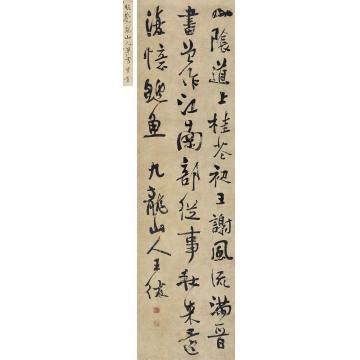 山陰道上桂花初王謝風流滿晉
書曾作江南部從事秋來還
復憶鱸魚 九龍山人王紱